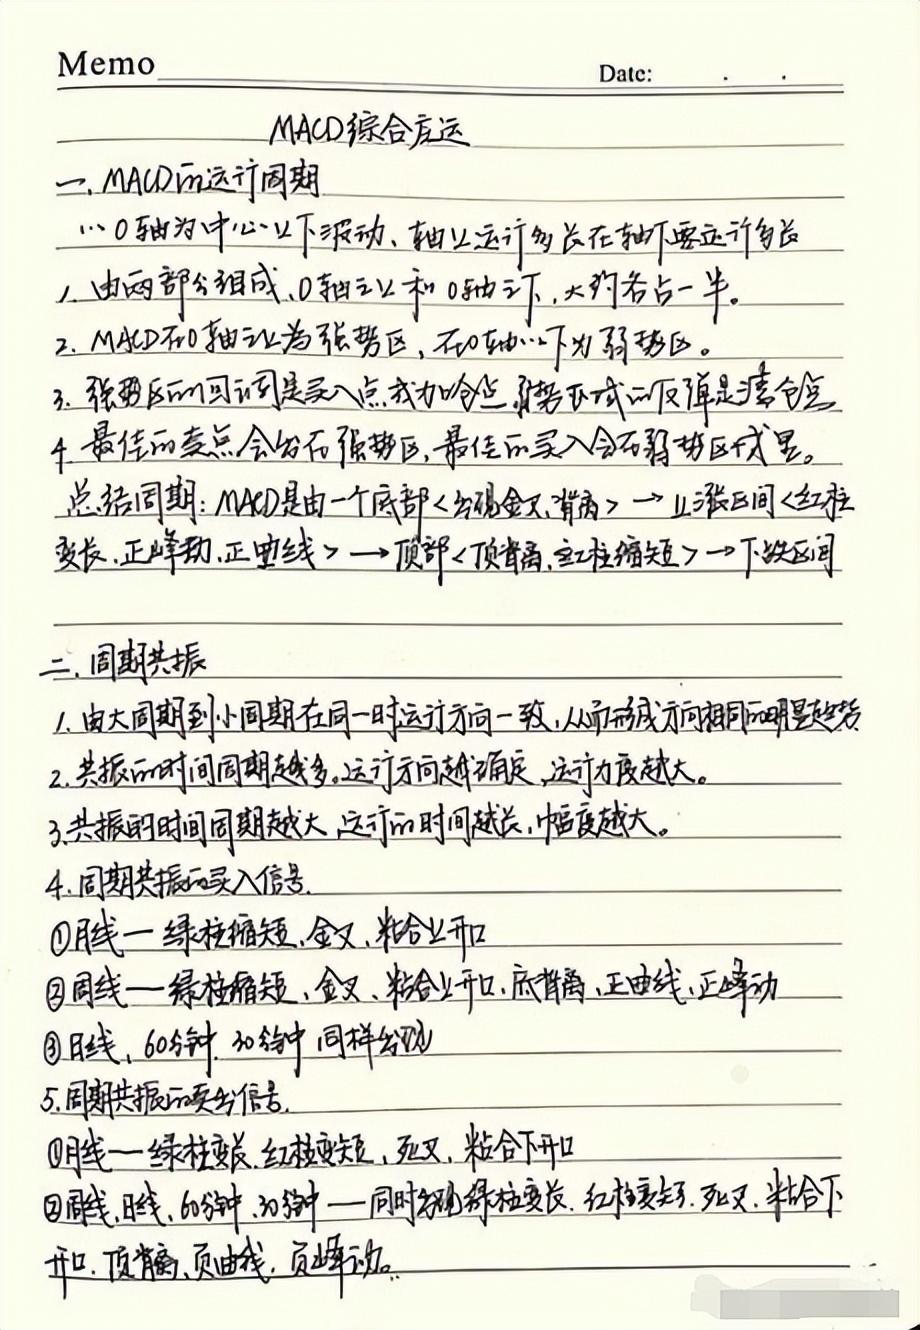 Memo
Date: . .
MACD综合应运
一、MACD的运行周期
以0轴为中心以下波动、轴上运行多长在轴下要运行多长
1、由两部分组成、0轴之上和0轴之下、大约各占一半。
2、MACD在0轴之上为强势区，在0轴以下为弱势区。
3、强势区的回调是买入点或加仓点，弱势区域的反弹是清仓点
4、最佳的卖点会出在强势区，最佳的买入会在弱势区域里。
总结周期：MACD是由一个底部<出现金叉、背离>→上涨区间<红柱
变长、正峰动、正曲线>→顶部<顶背离、红柱缩短>→下跌区间
二、周期共振
1、由大周期到小周期在同一时运行方向一致，从而形成方向相同的明显趋势
2、共振的时间周期越多。运行方向越确定、运行力度越大。
3、共振的时间周期越大、运行的时间越长，幅度越大。
4、周期共振的买入信号.
①月线—绿柱缩短、金叉、粘合上开口
②周线—绿柱缩短、金叉、粘合上开口、底背离、正曲线、正峰动
③日线、60分钟、30分钟同样出现
5、周期共振的卖出信号.
①月线—绿柱变长、红柱变短、死叉、粘合下开口
②周线、日线、60分钟、30分钟—同时出现绿柱变长、红柱变短、死叉、粘合下
开口、顶背离、负曲线、负峰动。